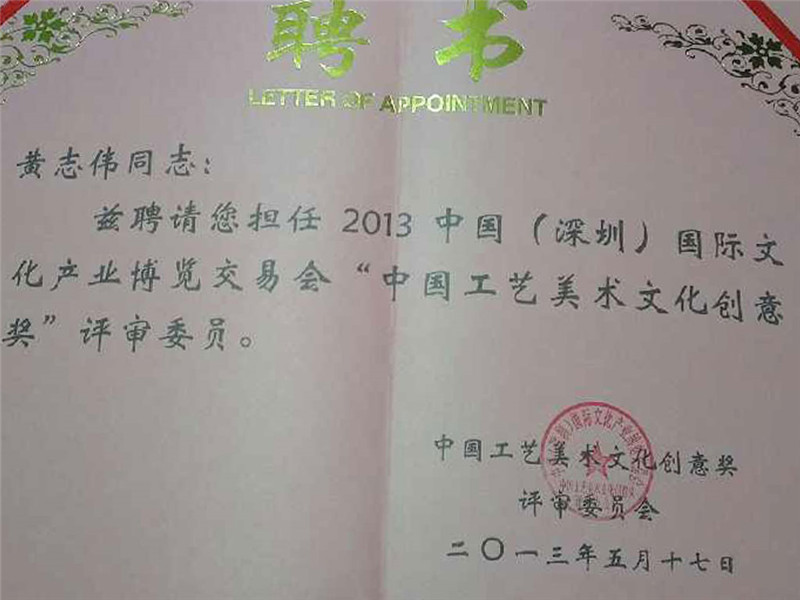 聘书
LETTER OF APPOINTMENT
黄志伟同志：
兹聘请您担任 2013 中国（深圳）国际文
化产业博览交易会“中国工艺美术文化创意
奖”评审委员。
中国工艺美术文化创意奖
评审委员会
二〇一三年五月十七日